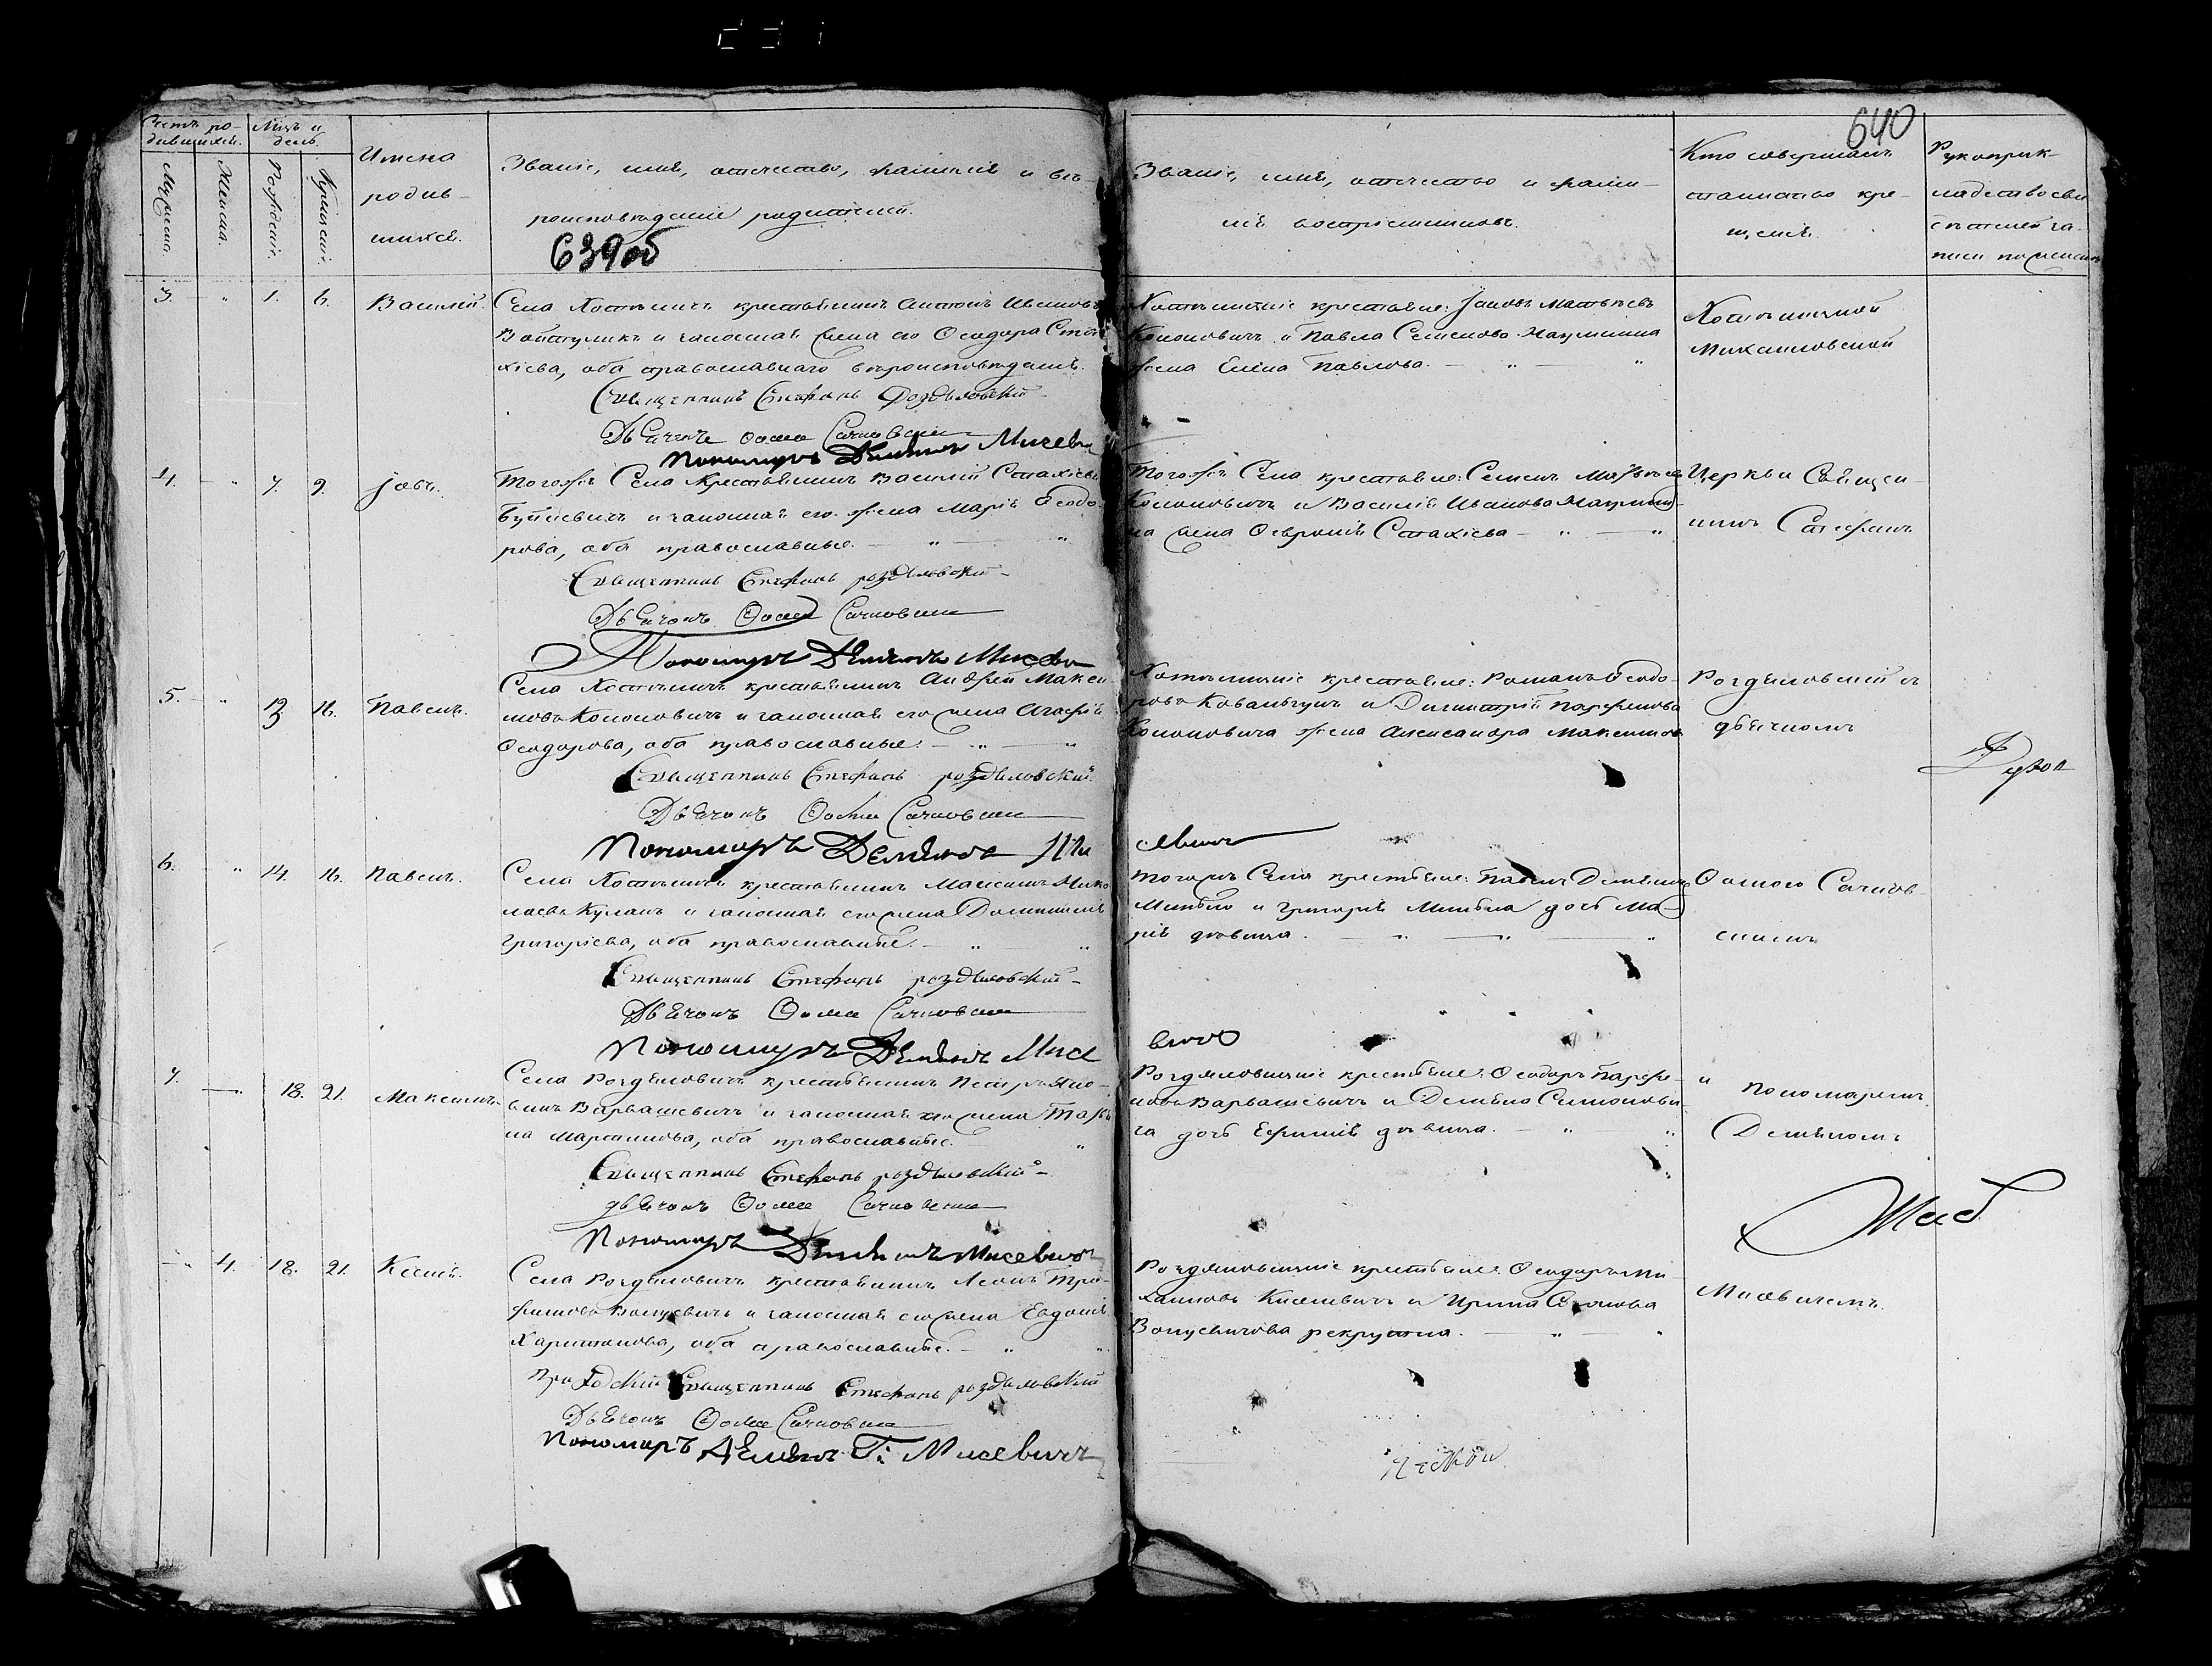 640
Счетъ ро-
дившихся.
Мѣць и
день.
Мужеска.
Женска.
Рожденія.
Крещенія.
Имена
родив-
шихся.
Званіе, имя, отечество, фамилія и вѣ-
роисповѣданіе родителей.
639об
Званіе, имя, отечество и фами-
лія воспріемниковъ.
Кто совершалъ
таинство кре-
щенія.
Рукоприк-
ладство сви
дѣтелей за-
писи по желанію
3. " 1. 6. Василій.
Села Хотыничъ крестьянинъ Антонъ Ивановъ
Войтуликъ и законная жена его Ѳеодора Ста
хіева, оба православнаго вѣроисповѣданія.
Священникъ Стефанъ Роздяловскій
Дьячокъ Ѳома Сачковскій
Пономаръ Демянъ Мисеви
Хотыницкіе крестьяне: Іаковъ Матвѣевъ
Кононовичъ и Павла Семенова Наумчика
жена Елена Павлова. — " — "
Хотыницкой
Михаиловской
4. — " 7. 9. Іовъ.
Тогожъ Села Крестьянинъ Василій Стахіевъ
Буйневичъ и законная его жена Марія Ѳеодо-
рова, оба православные. — " — "
Священникъ Стефанъ роздяловскій
Дьячокъ Ѳома Сачковскій
Пономаръ Демянъ Мисеви
Тогожъ Села крестьяне: Семенъ Матвѣевъ
Кононовичъ и Василія Иванова Наумчи
ка жена Ѳевронія Стахіева — " — "
Церкви Священ-
никъ Стефанъ
5. — " 13 16. Павелъ.
Села Хотыничъ крестьянинъ Андрей Макси
мовъ Кононовичъ и законная его жена Агафія
Ѳеодорова, оба православные. — " — "
Священникъ Стефанъ роздяловскій
Дьячокъ Ѳома Сачковскій
Пономаръ Демянъ Ми
севичъ
Хотыницкіе крестьяне: Романъ Ѳеодо-
ровъ Ковальчукъ и Димитрія Парфенова
Кононовича жена Александра Максимова
Роздяловскій съ
дьячкомъ
6. " 14. 16. Павелъ.
Села Хотыничъ крестьянинъ Максимъ Нико
лаевъ Куланъ и законная его жена Доминикія
Григоріева, оба православные. — " "
Священникъ Стефанъ роздяловскій
Дьячокъ Ѳома Сачковскій
Пономаръ Демянъ Мисе
вичъ
тогожъ Села крестьяне: Павелъ Демянов
и Григорія дочь Ма-
рія дѣвица. — " — " — "
Ѳомою Сачков
скимъ
7. — 18. 21. Максимъ.
Села Роздяловичъ крестьянинъ Петръ Яко-
влевъ Варвашевичъ и законная его жена Татья
на Мартинова, оба православные. "
Священникъ Стефанъ роздяловскій
дьячокъ Ѳома Сачковскій
Пономаръ Демянъ Мисевичъ
Роздяловицкіе крестьяне: Ѳеодоръ Парфе-
новъ Варвашевичъ и Демяна Симонови
ча дочь Ефимія дѣвица. — " "
и пономаремъ
Демяномъ
— " 4. 18. 21. Ксенія.
Села Роздяловичъ крестьянинъ Леонъ Тро-
фимовъ Вонуевичъ и законная его жена Евдокія
Харитонова, оба православные. — " "
Приходскій Священникъ Стефанъ роздяловскій
Дьячокъ Ѳома Сачковскій
Пономаръ Демянъ Г: Мисевичъ
Роздяловицкіе крестьяне Ѳеодоръ Ми-
хаиловъ Киселевичъ и Ирина
Вонуевичова рекрутка. — " — "
Мисевичемъ.